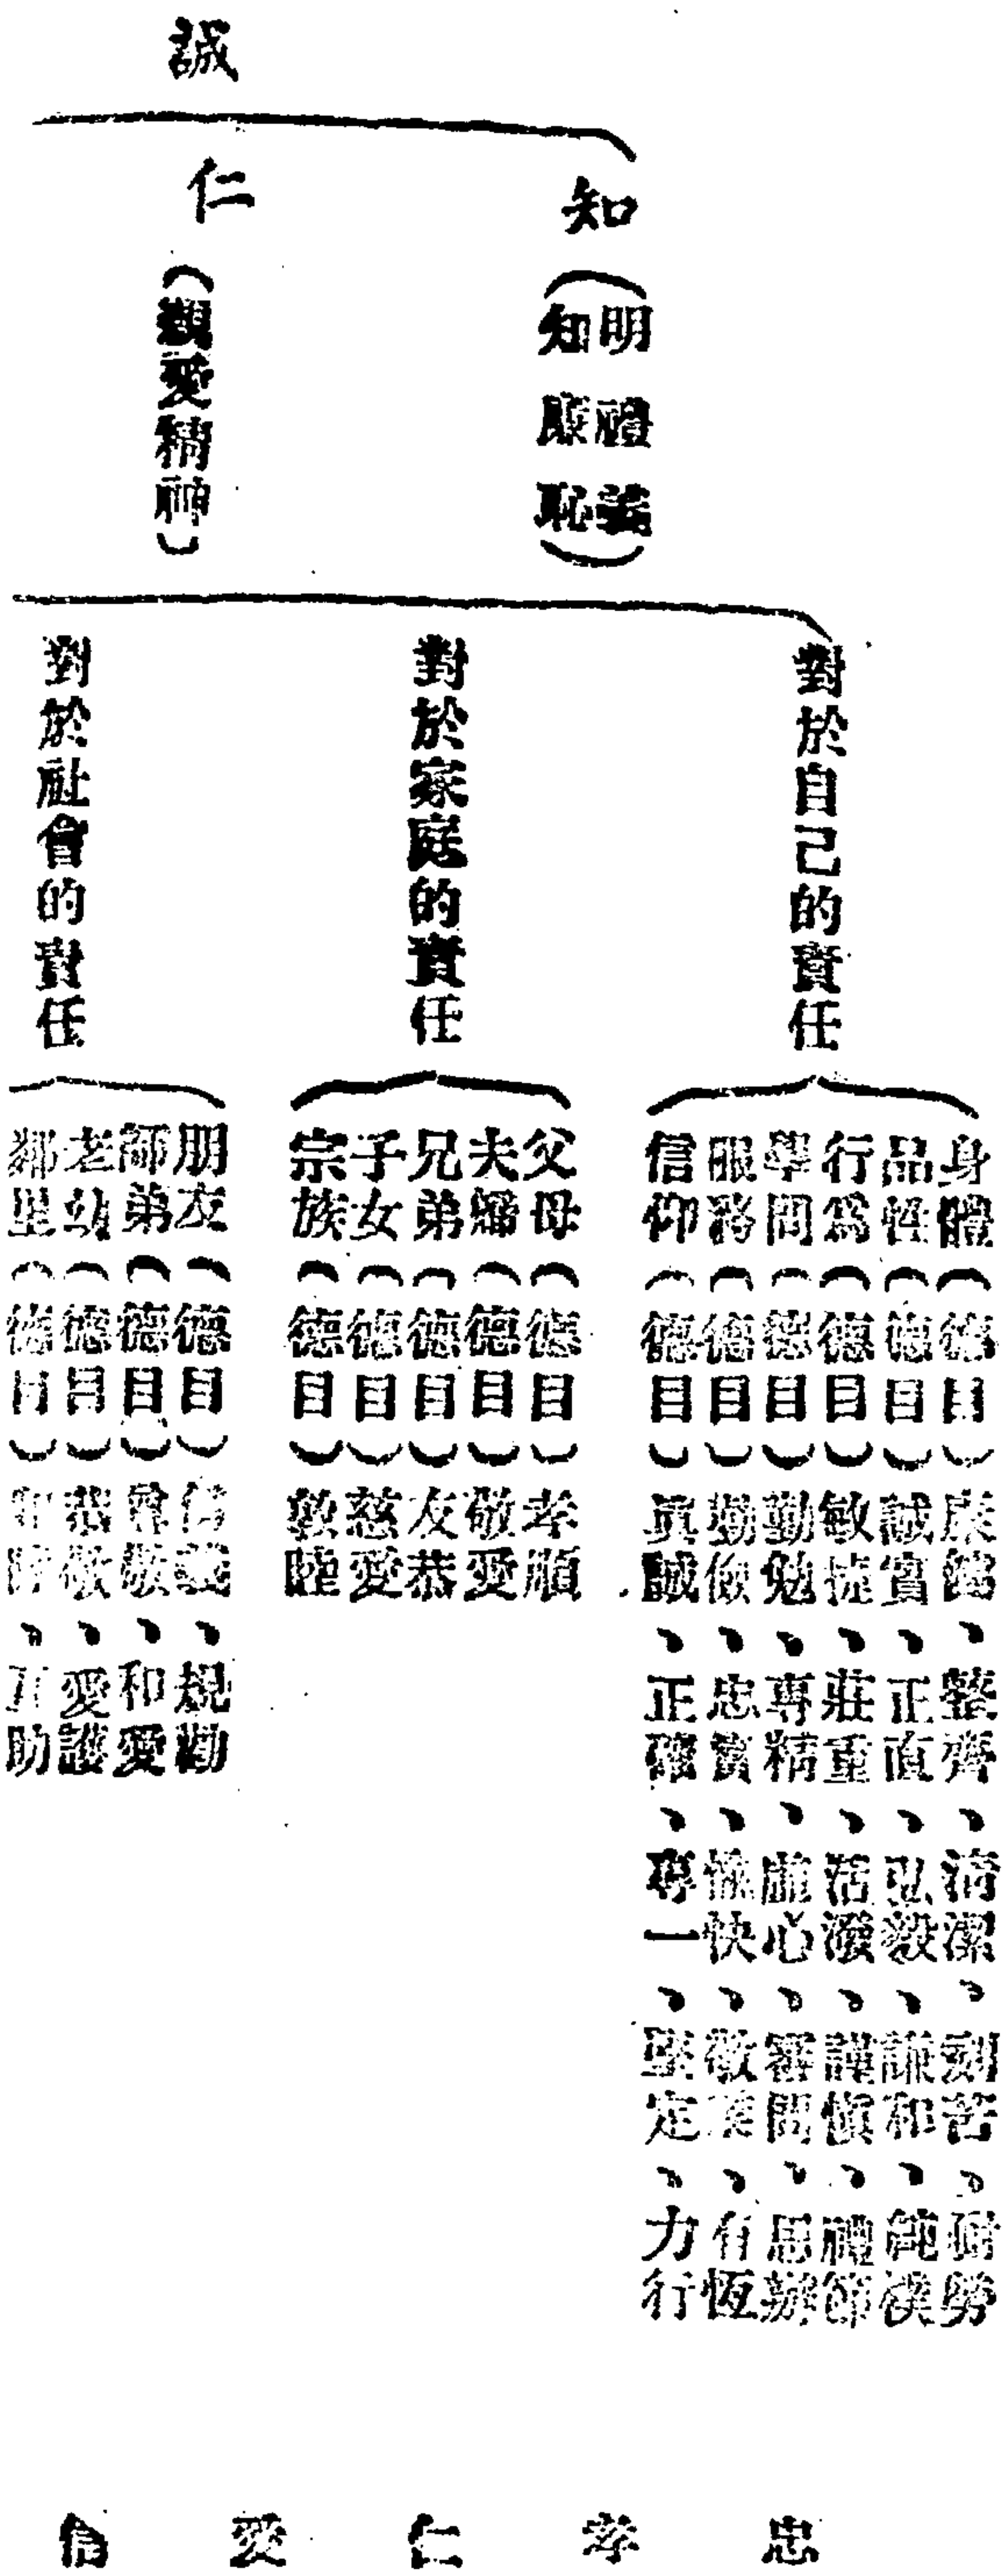 誠
知（明禮義
知廉恥）
仁（親愛精神）
對於自己的責任
身體（德目）康健、整齊、清潔、刻苦、耐勞
品性（德目）誠實、正直、弘毅、謙和、純樸
行爲（德目）敏捷、莊重、活潑、謹愼、禮節
學問（德目）勤勉、專精、虛心、審問、思辦
服務（德目）勤儉、忠實、愉快、敬業、有恆
信仰（德目）眞誠、正確、專一、堅定、力行
對於家庭的責任
父母（德目）孝順
夫婦（德目）敬愛
兄弟（德目）友恭
子女（德目）慈愛
宗族（德目）敦睦
對於社會的責任
朋友（德目）信義、規勸
師弟（德目）尊敬、和愛
老幼（德目）恭敬、愛護
鄰里（德目）和睦、互助
忠孝仁愛信